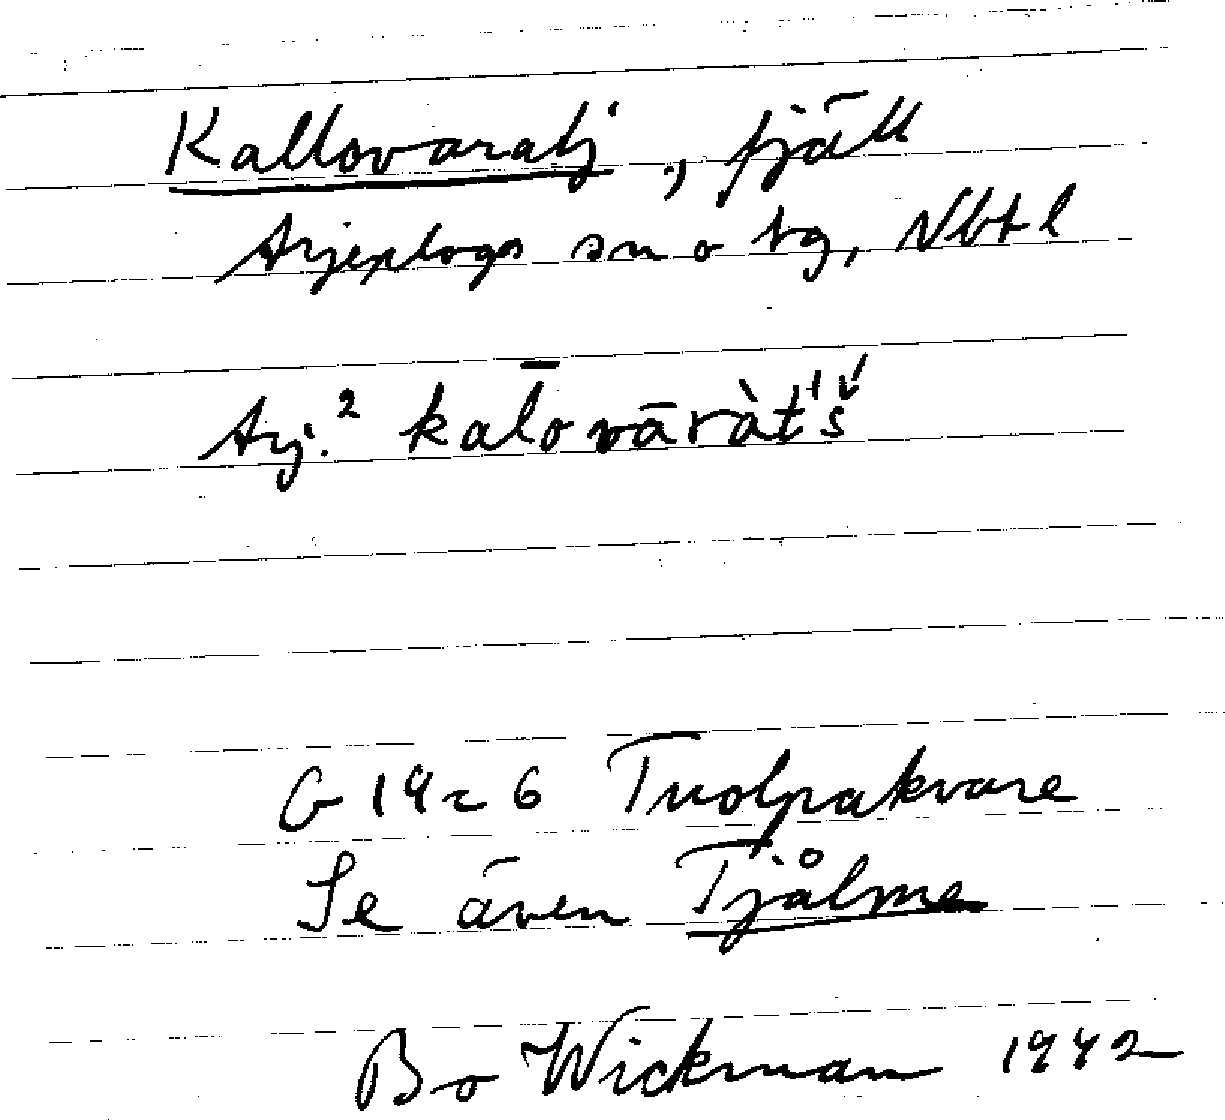 Kallovaratj, fjäll
Arjeplogs sn o tg, Nbtl
Arj.² kal̄ovāràt'š́
G 19 c 6 Tuolpakvare
Se även Tjålme
Bo Wickman 1942